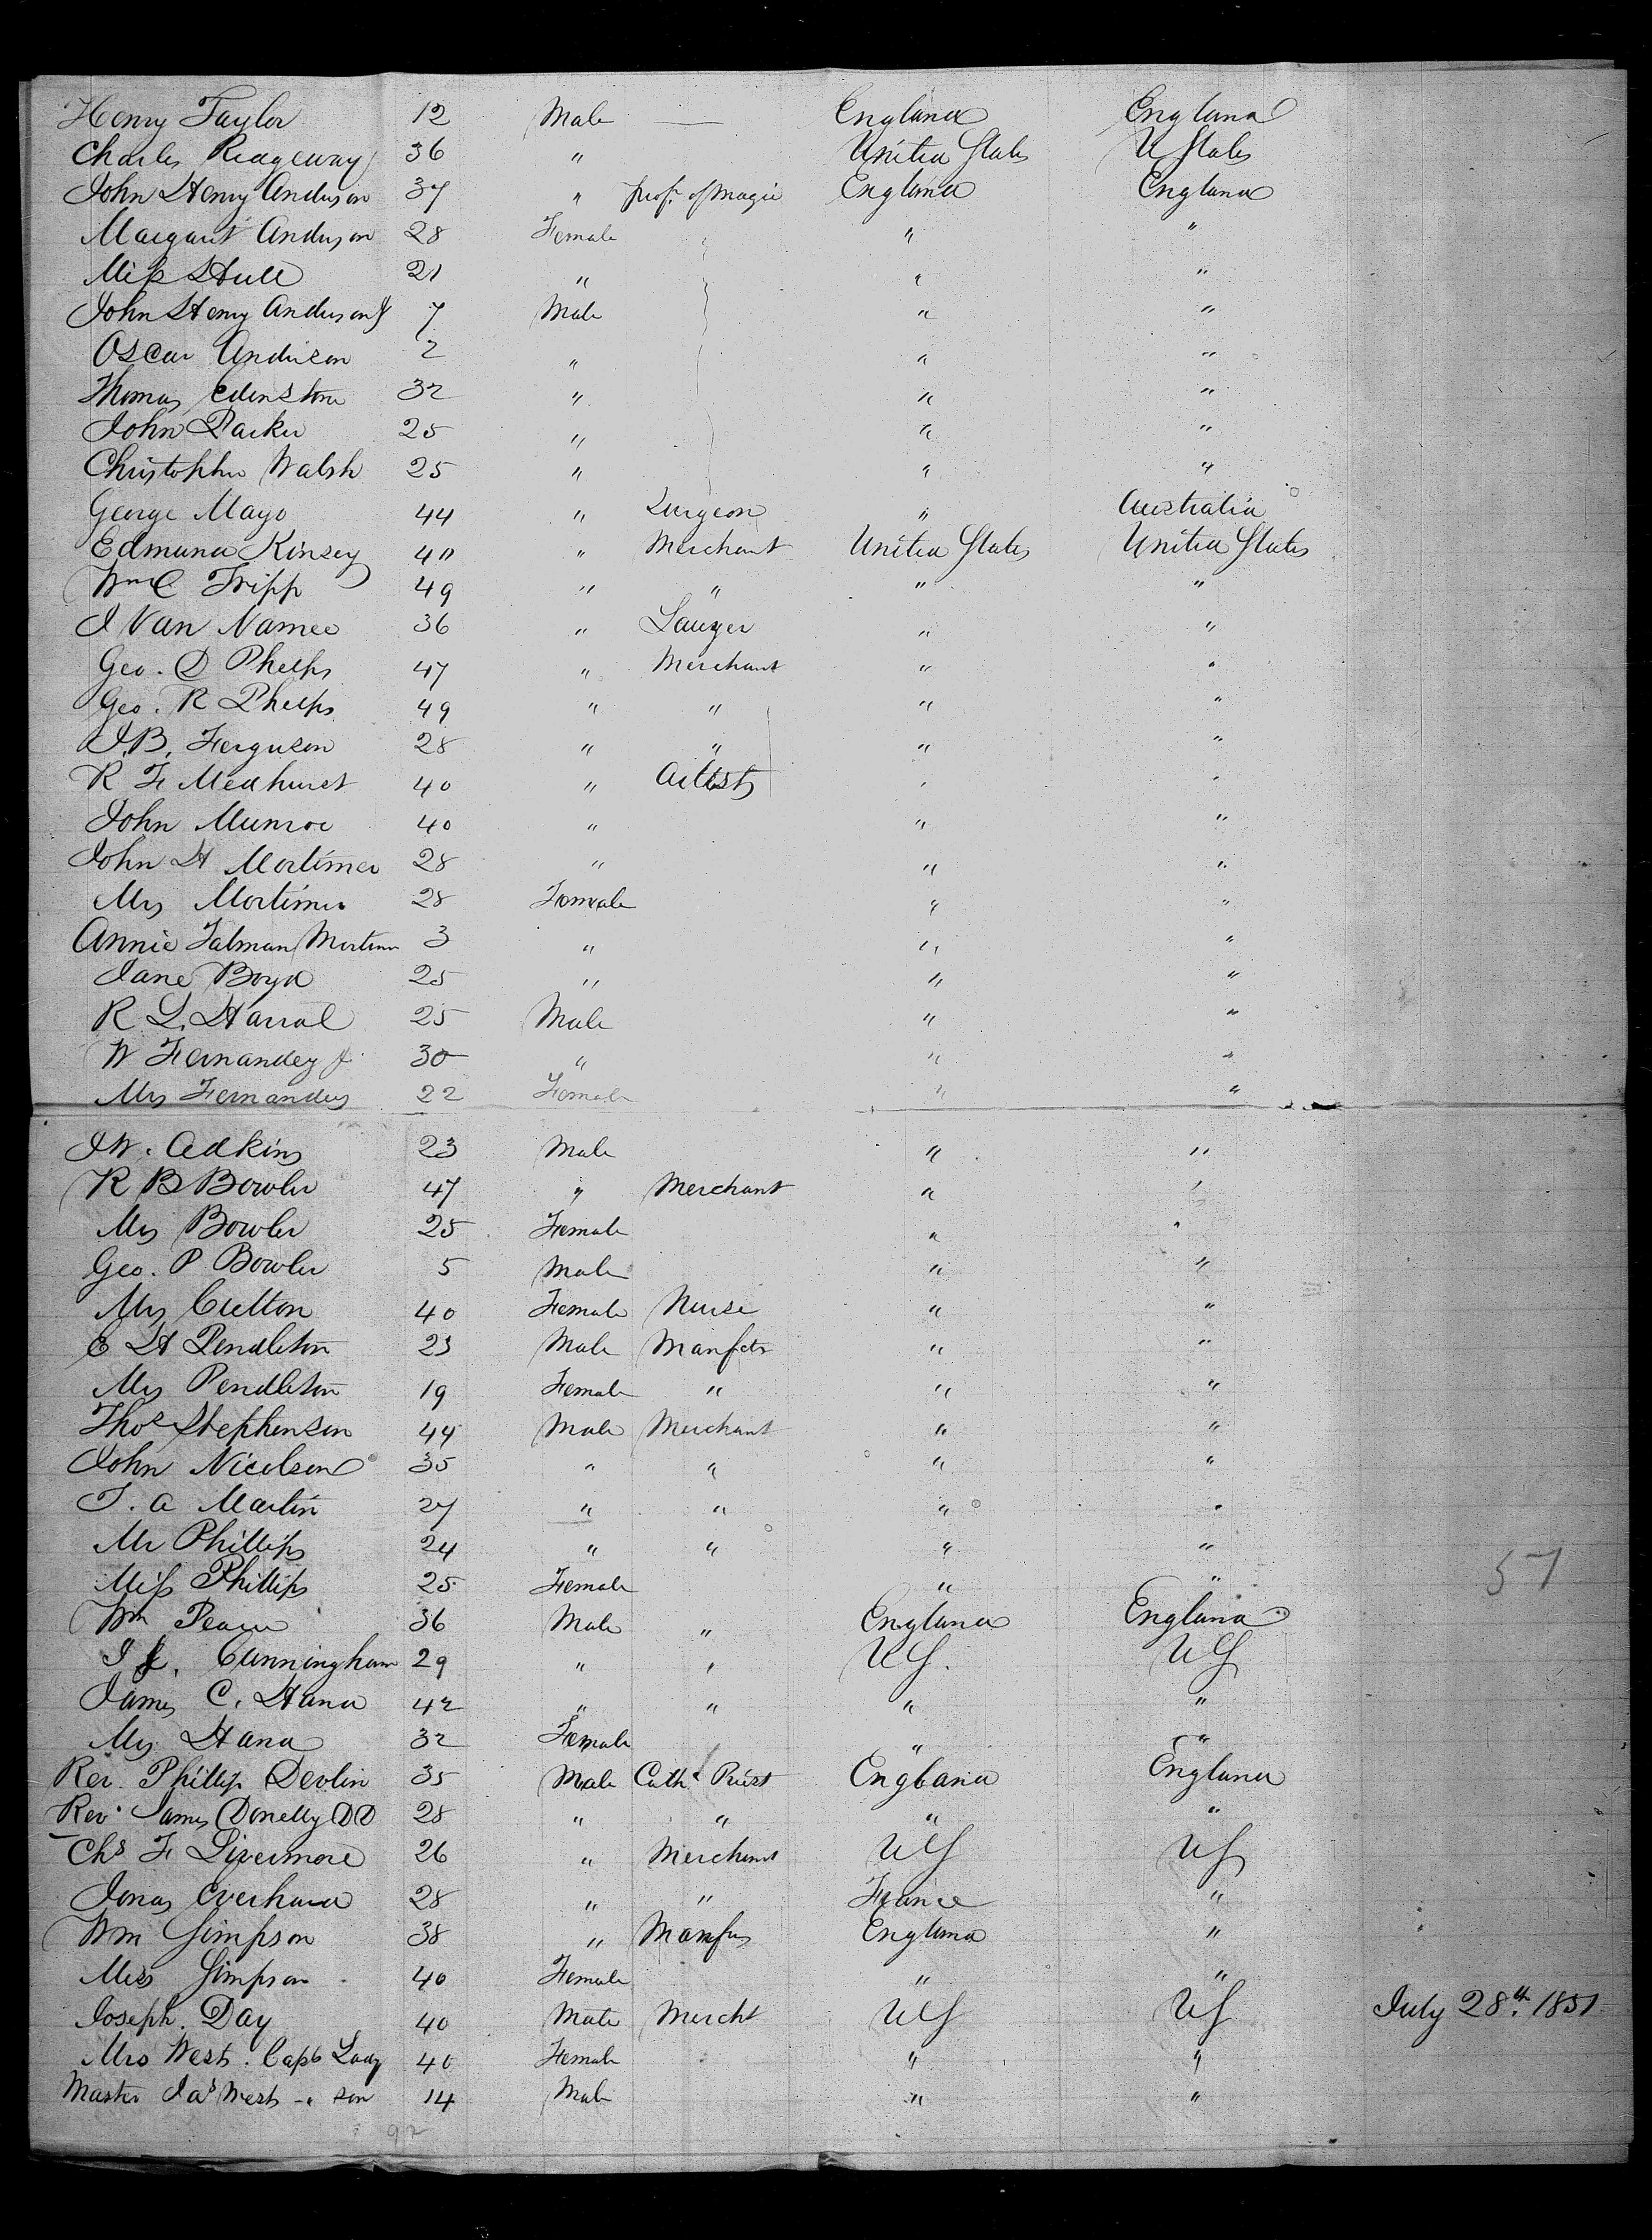 Henry Taylor 12 Male — England England
Charles Ridgeway 36 " United States U States
John Henry Anderson 37 " Prof. of Magic England England
Margaret Anderson 28 Female " "
Miss Hull 21 " " "
John Henry Anderson Jr 7 Male " "
Oscar Anderson 2 " " "
Thomas Edenstone 32 " " "
John Parker 25 " " "
Christopher Walsh 25 " " "
George Mayo 44 " Surgeon " Australia
Edmund Kinsey 40 " Merchant United States United States
Wm C Tripp 49 " " " "
J Van Namee 36 " Lawyer " "
Geo. D Phelps 47 " Merchant " "
Geo. R Phelps 49 " " " "
J. B. Ferguson 28 " " " "
R F Medhurst 40 " Artist " "
John Munroe 40 " " "
John H Mortimer 28 " " "
Mrs Mortimer 28 Female " "
Annie Talman Mortimer 3 " " "
Jane Boyd 25 " " "
R L. Harral 25 Male " "
W Fernandez Jr 30 " " "
Mrs Fernandez 22 Female " "
J W. Adkins 23 Male " "
R B Bowler 47 " Merchant " "
Mrs Bowler 25 Female " "
Geo. P Bowler 5 Male " "
Mrs 40 Female Nurse " "
E H Pendleton 23 Male Manfctr " "
Mrs Pendleton 19 Female " " "
Thos Stephenson 44 Male Merchant " "
John Nicolson 35 " " " "
T. A Martin 27 " " " "
Mr Phillips 24 " " " "
Miss Phillips 25 Female " "
57
Wm Pearce 36 Male " England England
J Cunningham 29 " " US. US
James C. Hand 42 " " " "
Mrs Hand 32 Female " "
Rev. Phillip Devlin 35 Male Cath. Priest England England
Rev. James Donelly DD 28 " " " "
Chs F Livermore 26 " Merchant US US
Jonas Everhard 28 " " France "
Wm Simpson 38 " Manfrs England "
Miss Simpson 40 Female " "
Joseph Day 40 Male Mercht US US July 28th. 1851
Mrs West. Capts Lady 40 Female " "
Master Jas West - " son 14 Male " "
92